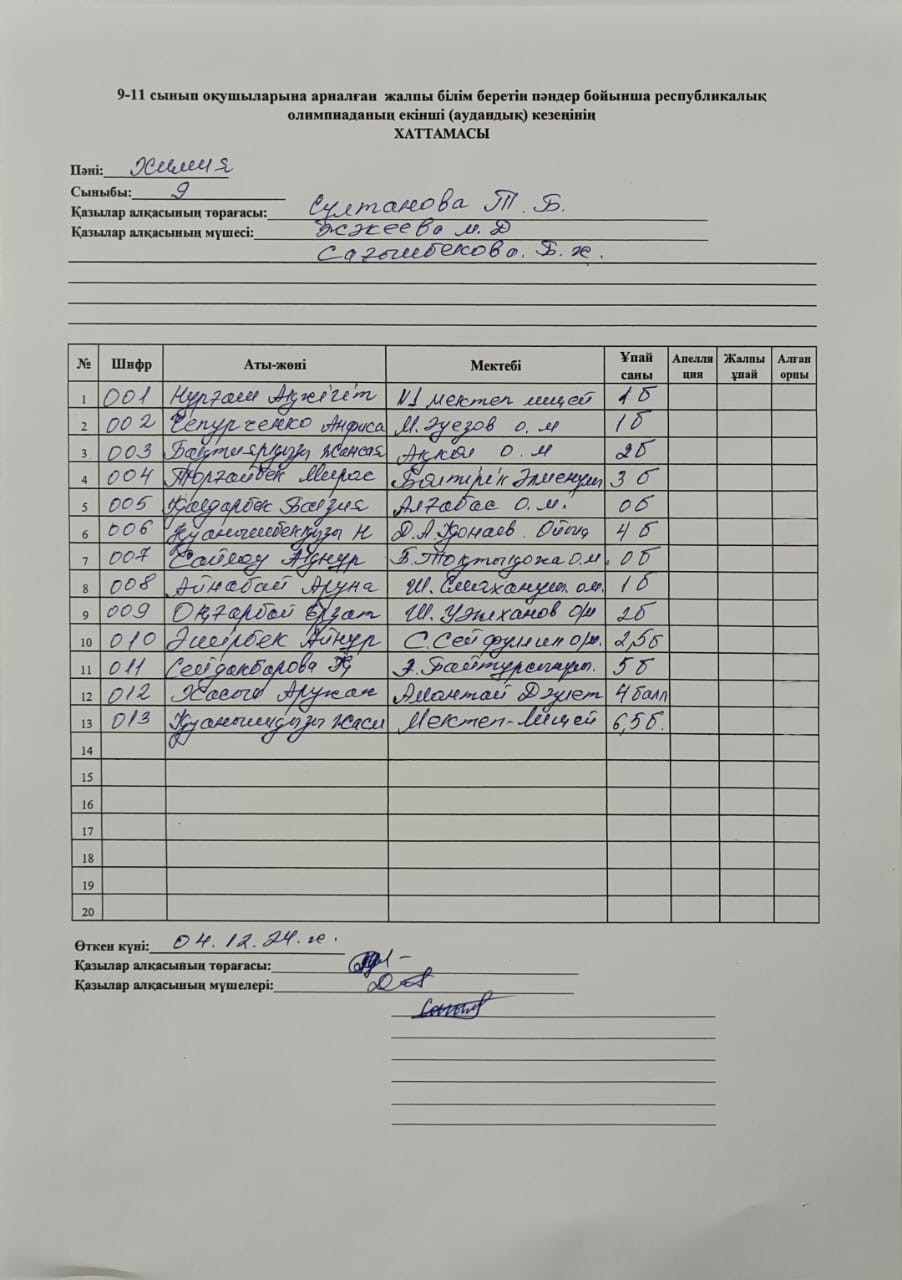 9-11 сынып оқушыларына арналған жалпы білім беретін пәндер бойынша республикалық
олимпиаданың екінші (аудандық) кезеңінің
ХАТТАМАСЫ
Пәні: Химия
Сыныбы: 9
Қазылар алқасының төрағасы: Султанова Т. Б.
Қазылар алқасының мүшесі: М. Д
Сағымбекова. Б. Ж.
№ Шифр Аты-жөні Мектебі Ұпай саны Апелляция Жалпы ұпай Алған орны
1 001 Нұрғали Ақжігіт №1 мектеп лицей 1б
2 002 Чепурченко Анфиса М. Әуезов о. м 1б
3 003 Бақтиярқызы Жансая Ақкөл о. м 2б
4 004 Торғайбек Мирас Бөлтірік 3 б
5 005 Қалдарбек Алғабас о. м. 0б
6 006 Қуанышбекқызы Н Д.А.Қонаев. Ойық 4 б
7 007 Сайлау Ақнұр Б. Тоқтықожа о.м. 0б
8 008 Айнабай Аруна Ш. о.м. 1б
9 009 Оңғарбай Ерзат Ш. Уәлиханов ом 2б
10 010 Әшірбек Айнұр С. Сейфуллин ом. 2,5б
11 011 Сейдакбарова 5 б
12 012 Аружан Амантай Дәулет 4 балл
13 013 Мектеп-Лицей 6,5б.
14
15
16
17
18
19
20
Өткен күні: 04.12.24.ж.
Қазылар алқасының төрағасы:
Қазылар алқасының мүшелері: